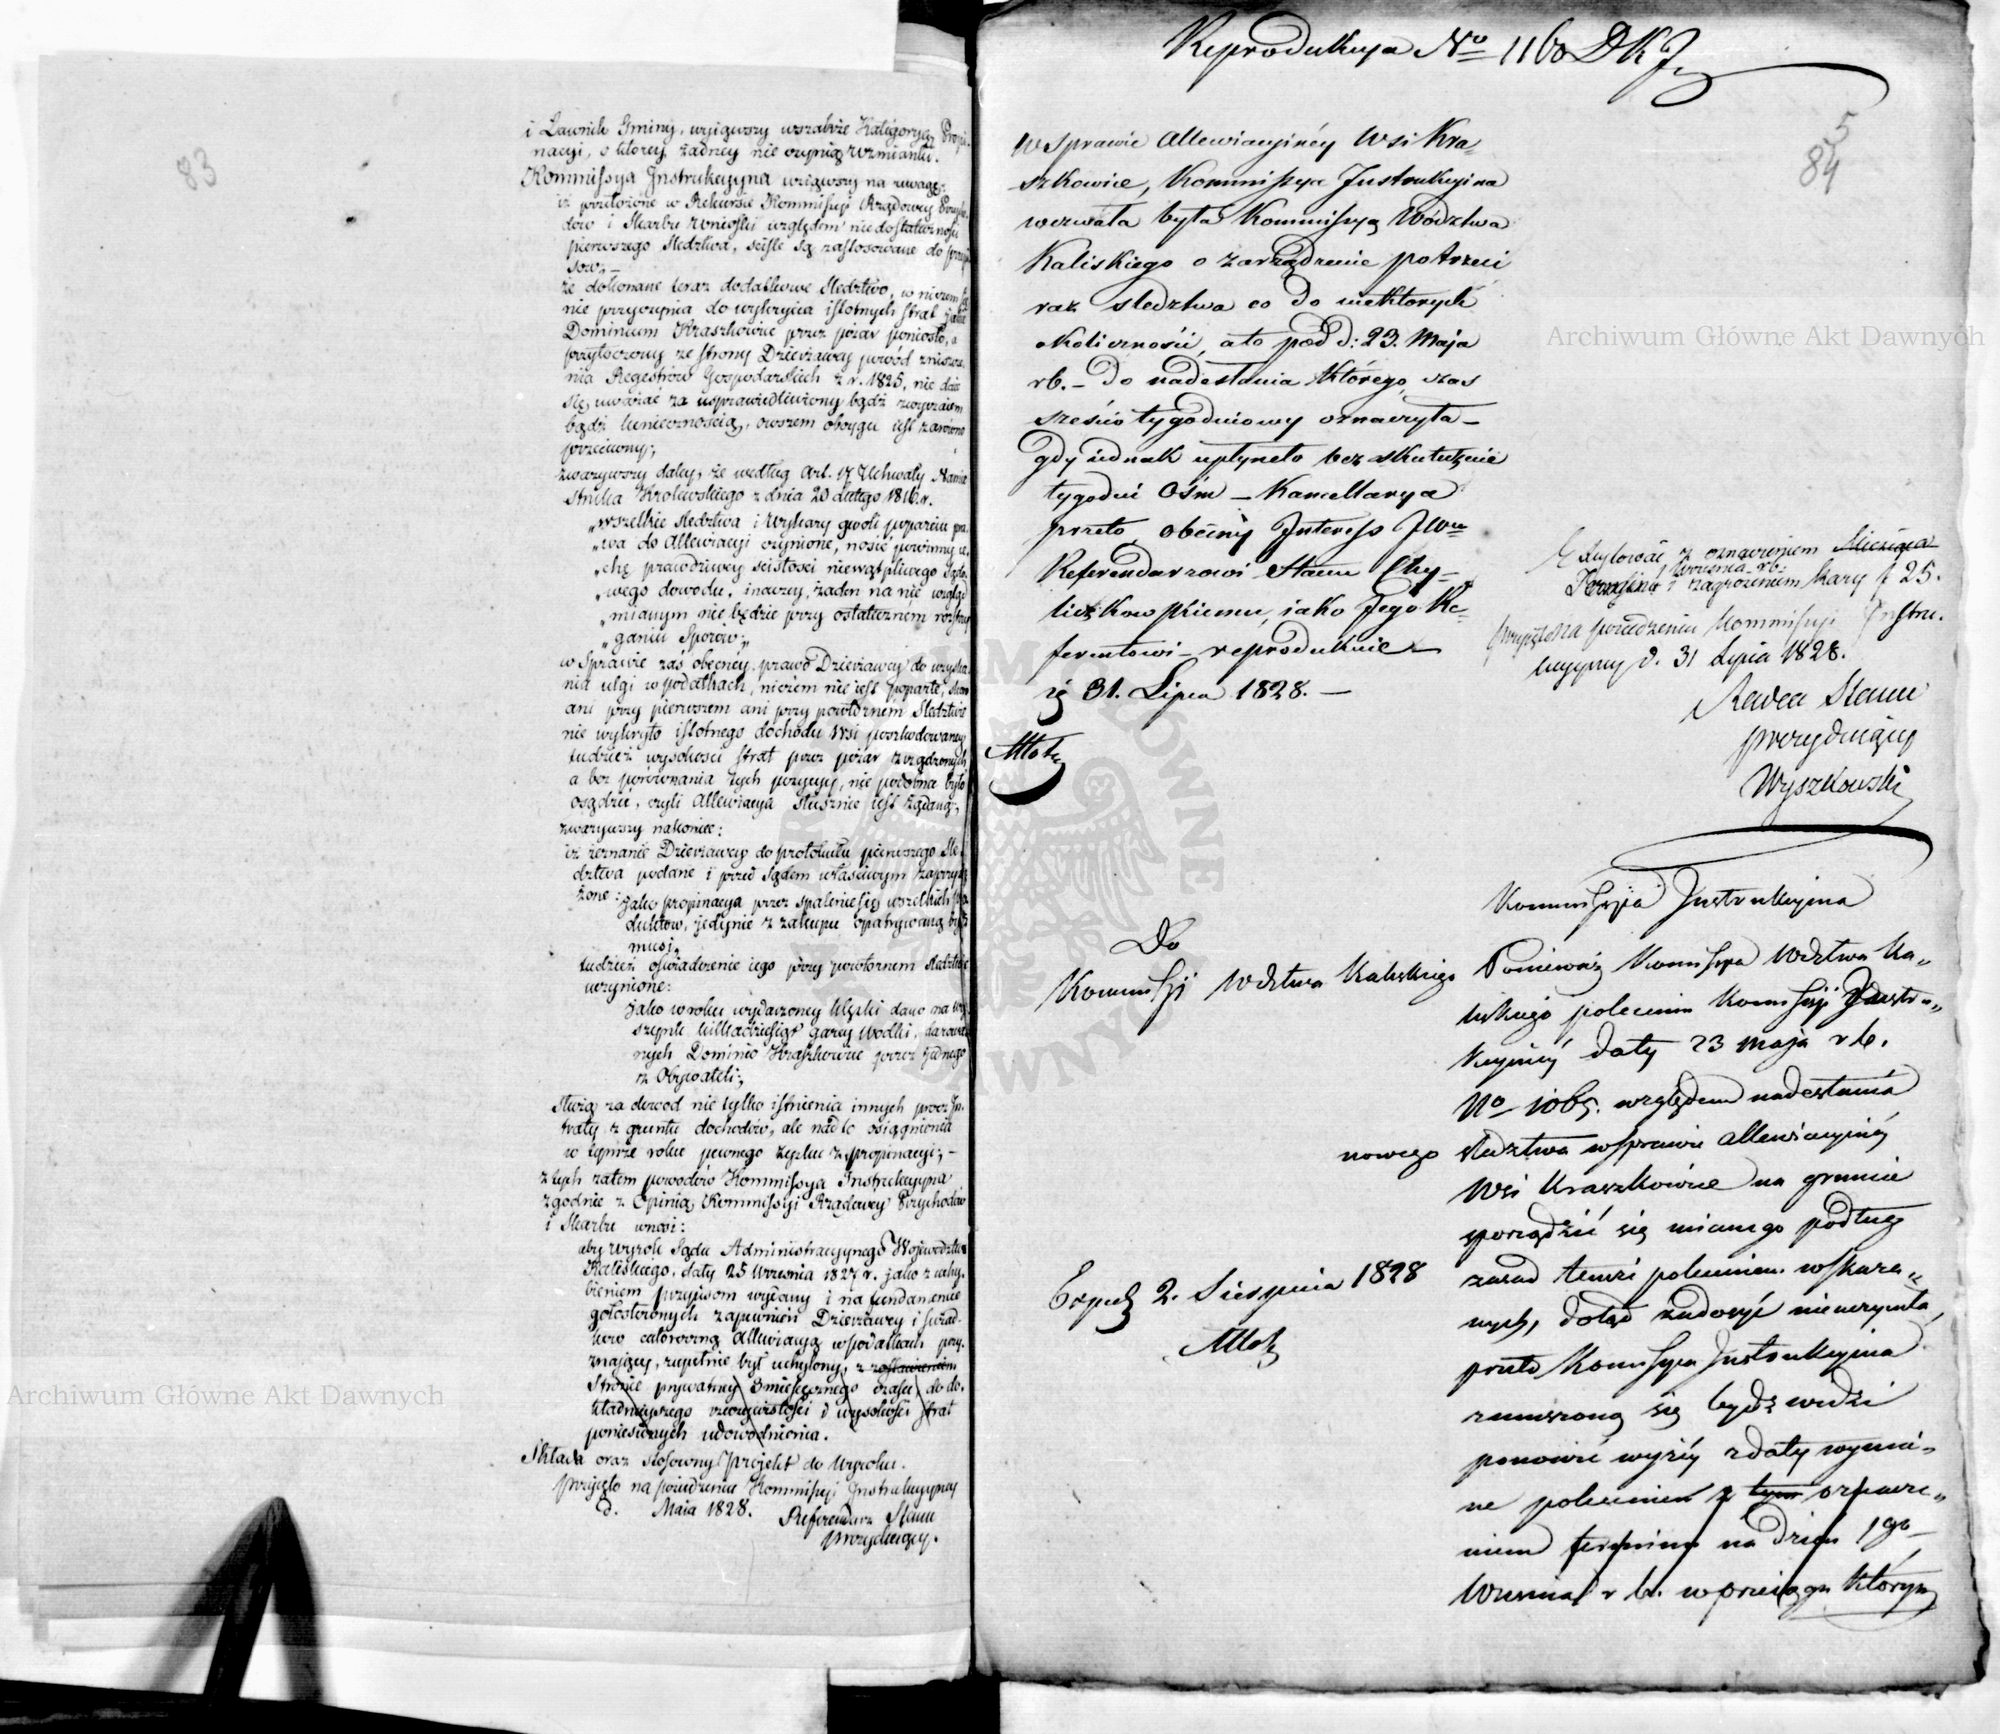 83
i Ławnik Gminy, wyiąwszy wszakże Kategoryą Propi-
nacyi, o którey żadney nie czynią wzmianki.
Kommissya Instrukcyyna wziąwszy na uwagę:
iż przełożone w Rekursie Kommissyi Rządowey Przycho-
dów i Skarbu wnioski względem niedostateczności
pierwszego śledztwa, ściśle są zastosowane do przepi-
sów.
że dokonane teraz dodatkowe śledztwo, w niczem się
nie przyczynia do wykrycia istotnych strat jakie
Dominium Kraszkowice przez pożar poniosło, a
przytoczony ze strony Dzierżawcy powód zniszcze-
nia Regestrów Gospodarskich z r. 1825, nie daie
się uważać za usprawiedliwiony bądź zwyczaiem
bądź koniecznością, owszem oboygu iest zarówno
przeciwny;
zważywszy daley, że według Art. 17 Uchwały Namie-
stnika Krolewskiego z dnia 20 Lutego 1816 r.
„wszelkie śledztwa i Wykazy gwoli poparciu pra-
„wa do Allewiacyi czynione, nosić powinny ce-
„chę prawdziwey ścisłości niewątpliwego Sądo-
„wego dowodu, inaczey, żaden na nie wzgląd
„mianym nie będzie przy ostatecznem rozstrzy-
„ganiu Sporów;
w Sprawie zaś obecney prawo Dzierżawcy do uzyska-
nia ulgi w podatkach, niczem nie iest poparte, skoro
ani przy pierwszem ani przy powtórnem Śledztwie
nie wykryto istotnego dochodu Wsi poszkodowaney
tudzież wysokości strat przez pożar zrządzonych
a bez porównania tych pozycyi, nie podobna było
osądzić, czyli Allewiacya słusznie iest żądaną;
zważywszy nakoniec:
iż zeznanie Dzierżawcy do protokułu pierwszego Śle-
dztwa podane i przed Sądem właściwym zaprzysię-
żone:
jako propinacya przez spalenie się wszelkich pro-
duktów, jedynie z zakupu opatrywaną być
musi,
tudzież oświadczenie iego przy powtórnem śledztwie
uczynione:
jako w roku wydarzoney klęski dano na wy-
szynk kilkadziesiąt garcy Wodki, darowa-
nych Dominio Kraszkowice przez jednego
z Obywateli;
Służą za dowód nie tylko istnienia innych prócz In-
traty z gruntu dochodów, ale nadto osiągnienia
w tymże roku pewnego zysku z propinacyi; –
z tych zatem powodów Kommissya Instrukcyyna
zgodnie z Opinią Kommissyi Rządowey Przychodów
i Skarbu wnosi:
aby Wyrok Sądu Administracyynego Województwa
Kaliskiego, daty 25 Września 1827 r. jako z uchy-
bieniem przepisom wydany i na fundamencie
gołosłownych zapewnień Dzierżawcy i świad-
ków całoroczną Allewiacyą w podatkach przy-
znaiący, zupełnie był uchylony, z zostawieniem
Stronie prywatney 3 miesięcznego czasu do do-
kładnieyszego rzeczywistości i wysokości strat
poniesionych udowodnienia.
Składa oraz stosowny projekt do Wyroku.
przyięto na posiedzeniu Kommissyi Instrukcyyney
d. Maia 1828.
Referendarz Stanu
prezyduiący.
Reprodukcya No 1160 DKJ
5
84
W Sprawie Allewiacyinéy Wsi Kra-
szkowice, Kommissya Instrukcyina
wezwała była Kommissyą Wództwa
Kaliskiego o zarządzenie po trzeci
raz śledztwa co do niektorych
okoliczności, a to pod d: 23. Maja
rb. – Do nadesłania którego, czas
sześcio tygodniowy oznaczyła –
gdy iednak upłyneło bez skutecznie
tygodni Ośm – Kancellarya
przeto, obecny Interess JWu
Referendarzowi Stanu Chy-
liczkowskiemu, iako Jego Re-
ferentowi – reprodukuie –
31. Lipca 1828. –
z oznaczeniem Miesiąca
Września rb.
i zagrożeniem kary f 25.
przyięto na posiedzeniu Kommissyi Instru-
kcyyney d. 31 Lipca 1828.
Radca Stanu
prezyduiący
Wyszkowski
Kommissyia Instrukcyina
Do
Kommissyi Wdztwa Kaliskiego
Ponieważ Kommissya Wdztwa Ka-
liskiego poleceniu Kommissyi Instru-
kcyinéy daty 23 maja r b.
No 1065. względem nadesłania
nowego śledztwa w sprawie allewiacyinéy
Wsi Kraszkowice na gruncie
sporządzić się mianego podług
zasad temże poleceniem wskaza-
nych, dotąd zadosyć nieuczyniła,
przeto Kommissya Instrukcyina
zmuszoną się bydź widzi
ponowić wyżéy z daty wymie-
ne polecenie z tym oznacze-
niem terminu na dzień 1go
Września r b. w przeciągu którym
Exped 2. Sierpnia 1828